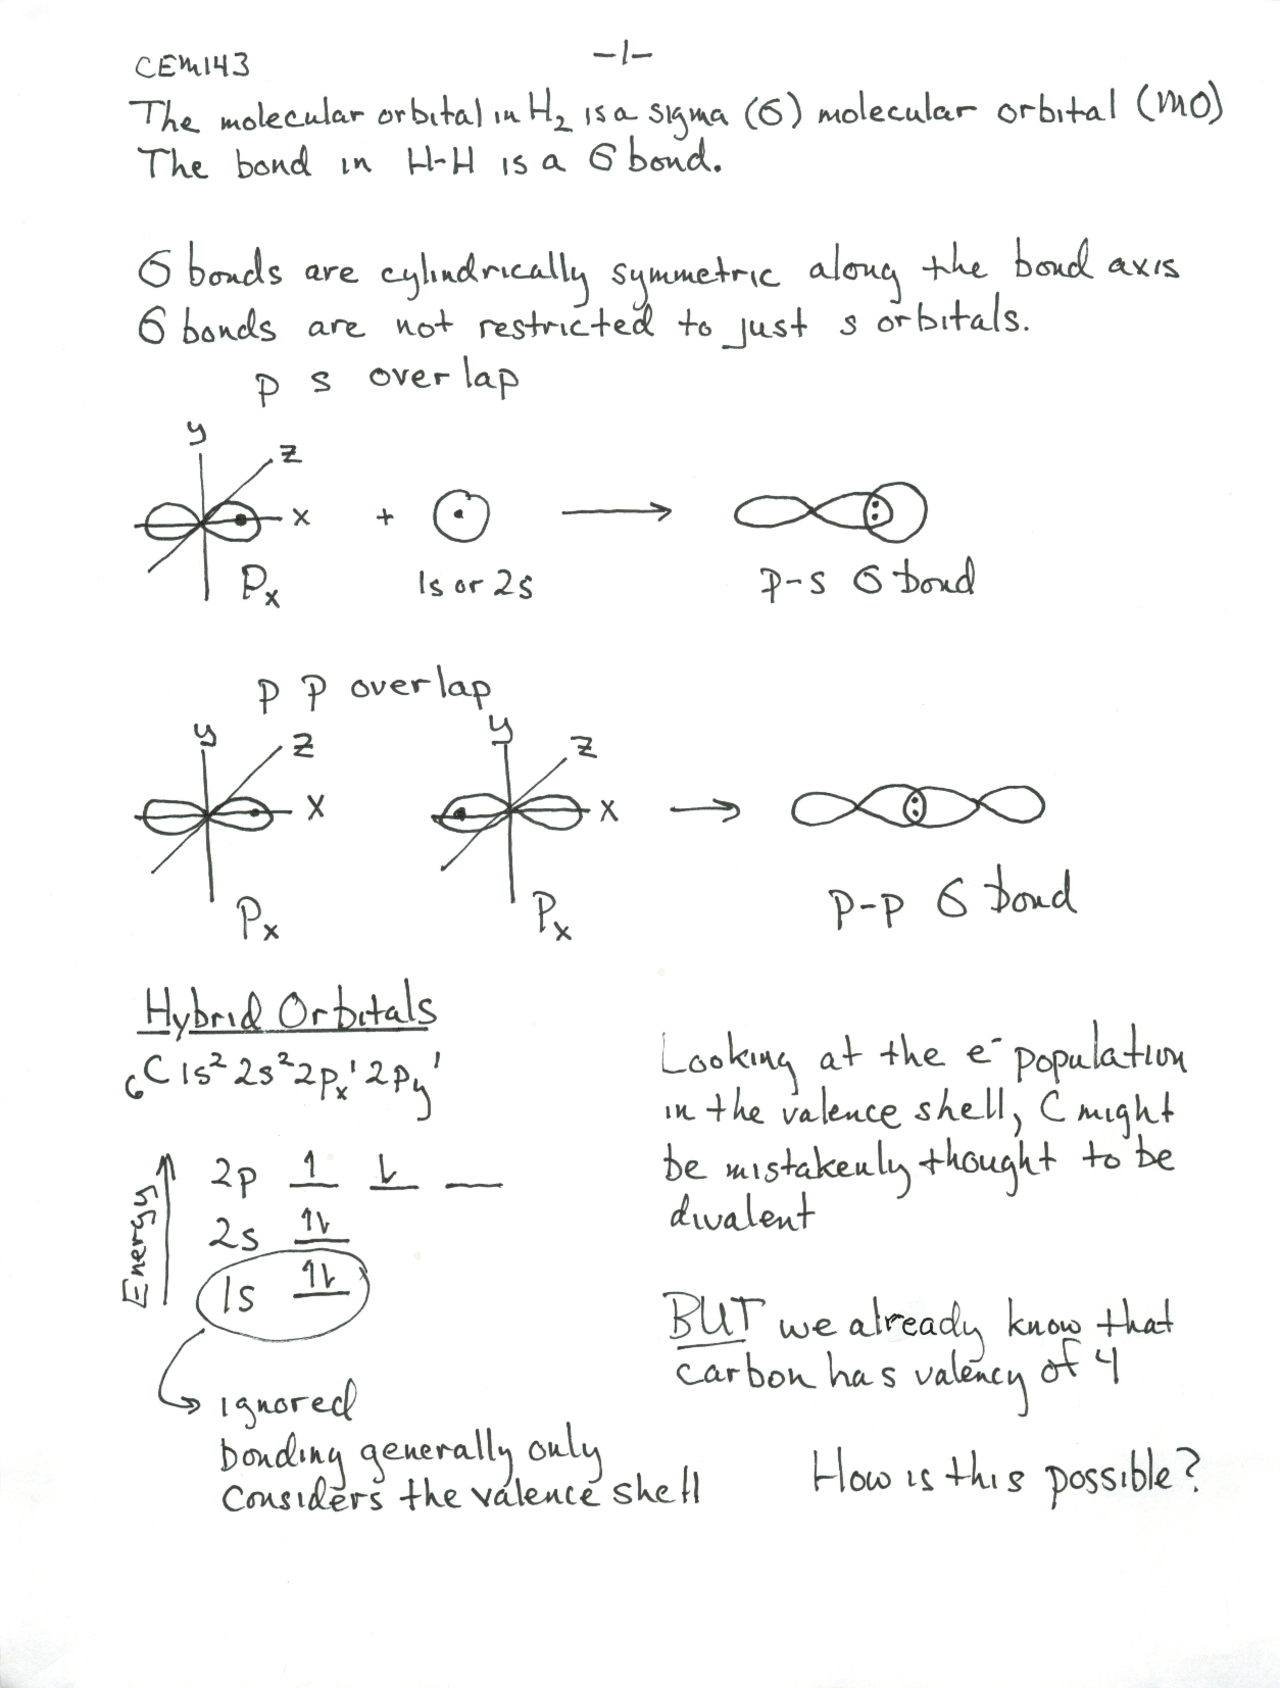 -1-
CEM143
The molecular orbital in H₂ is a sigma (σ) molecular orbital (MO)
The bond in H-H is a σ bond.
σ bonds are cylindrically symmetric along the bond axis
σ bonds are not restricted to just s orbitals.
p s overlap
y
z
x
+
Px
1s or 2s
p-s σ bond
p p overlap
y
z
x
Px
y
z
x
Px
p-p σ bond
Hybrid Orbitals
₆C 1s² 2s² 2pₓ¹ 2py¹
Energy
2p 1 ⇂ __
2s 1⇂
1s 1⇂
ignored
bonding generally only
considers the valence shell
Looking at the e⁻ population
in the valence shell, C might
be mistakenly thought to be
divalent
BUT we already know that
carbon has valency of 4
How is this possible?